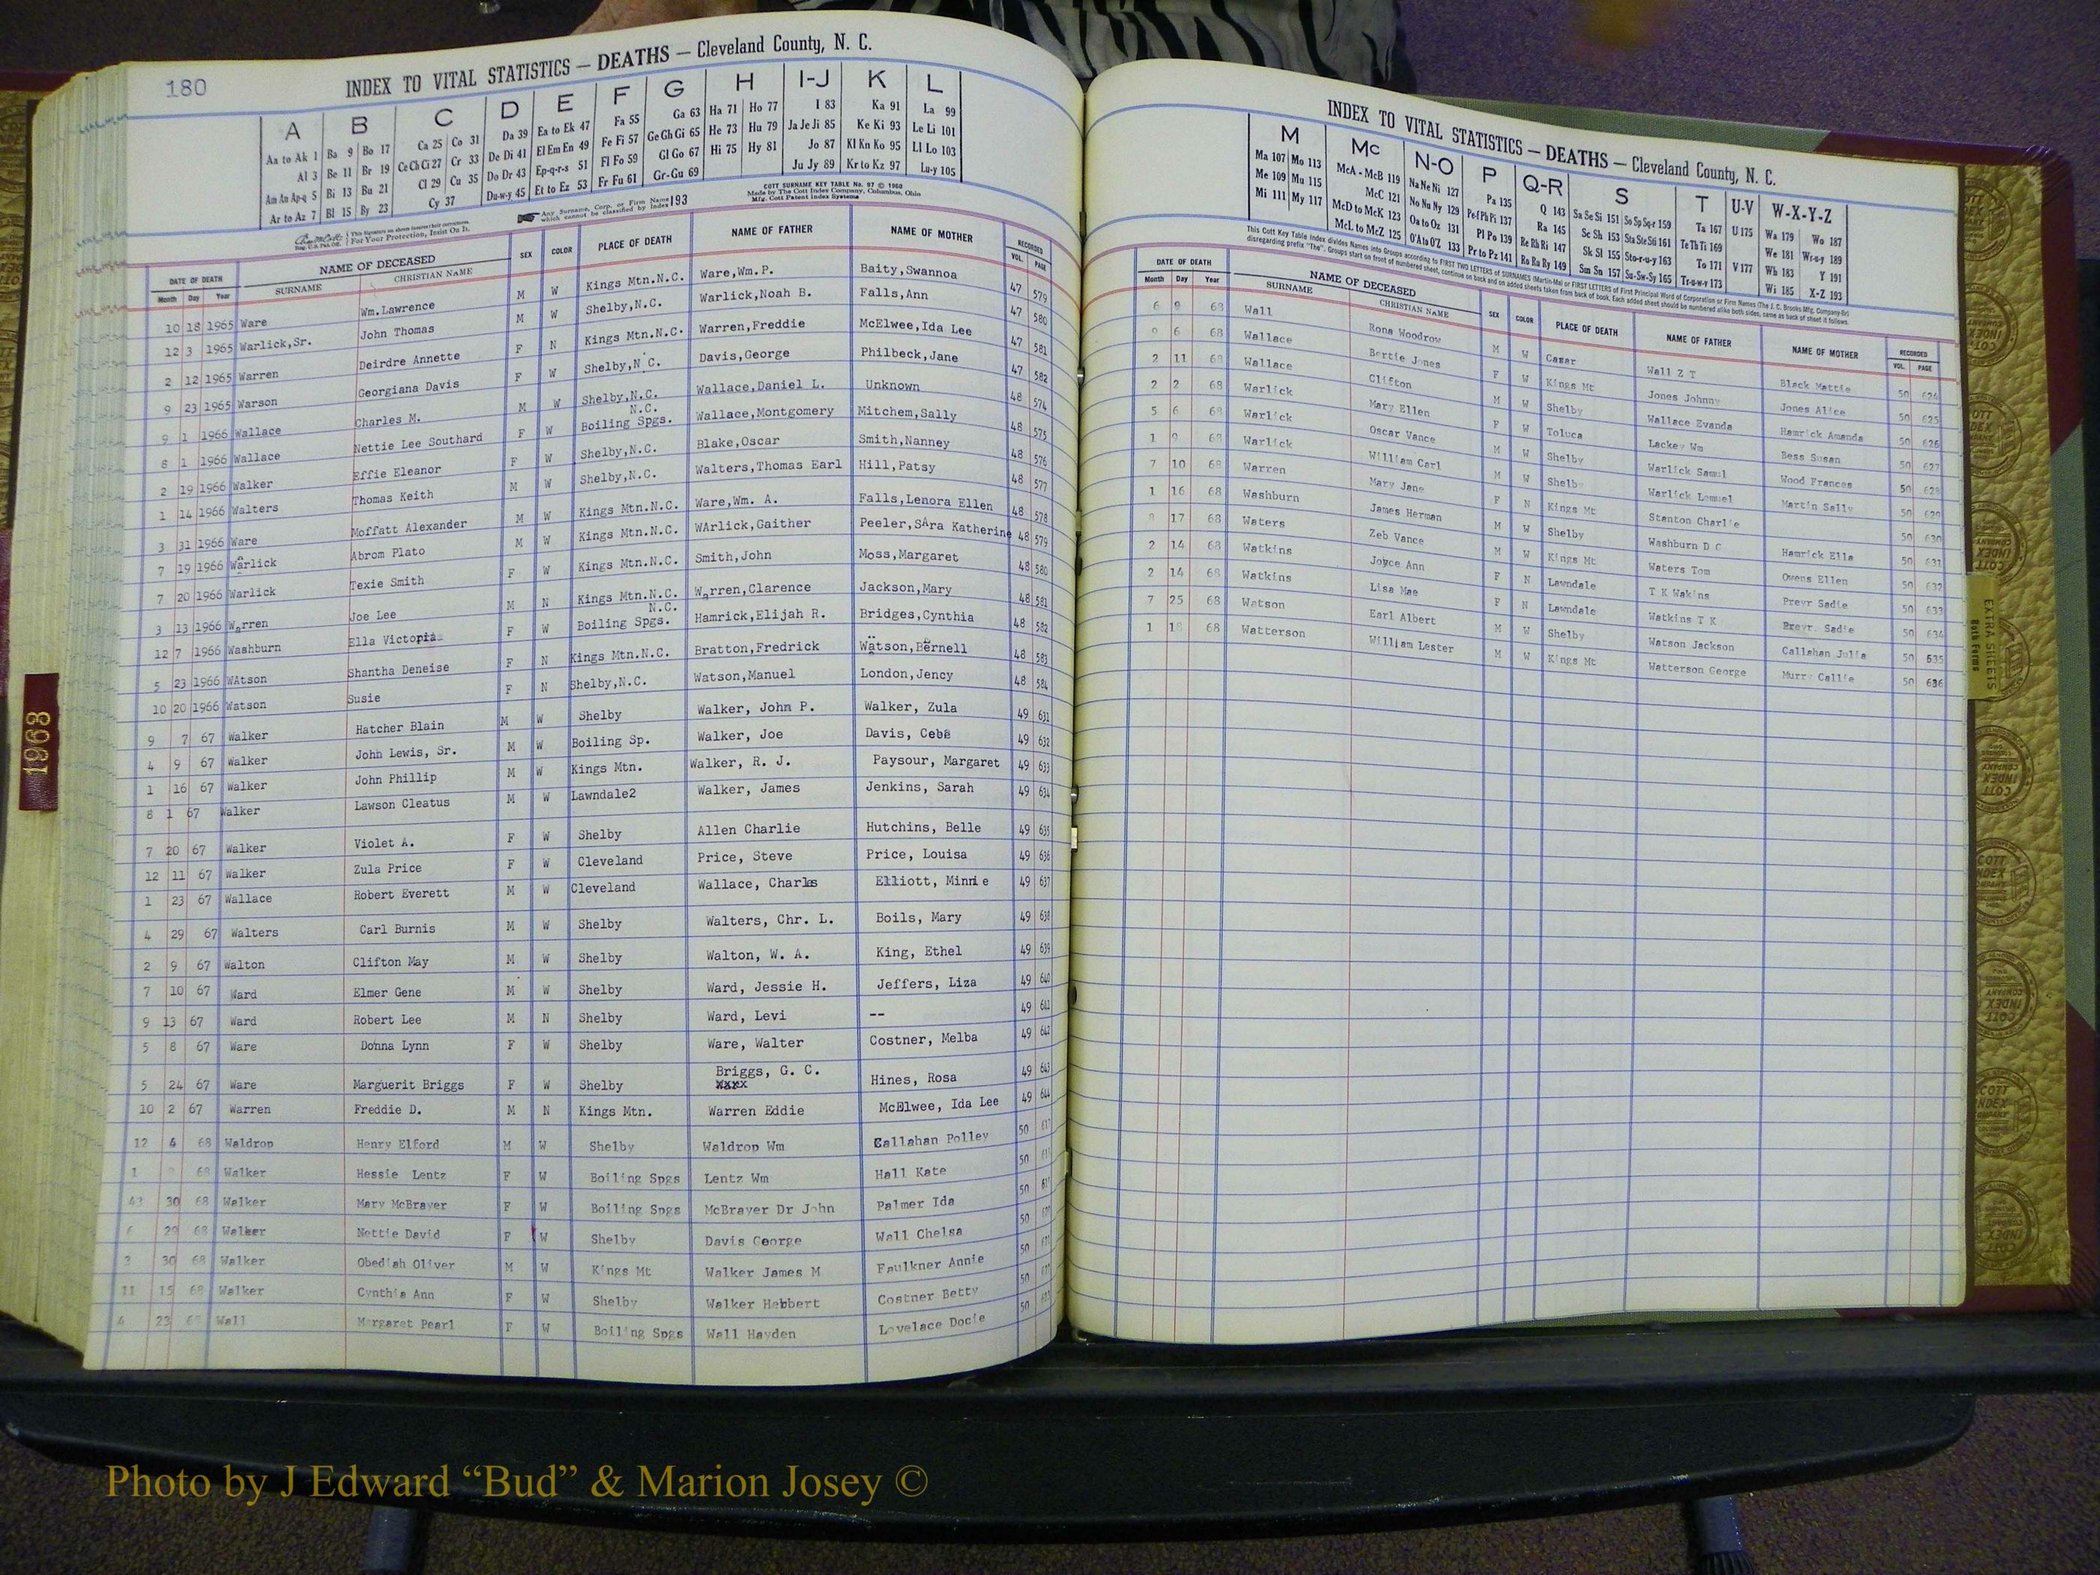 180
INDEX TO VITAL STATISTICS — DEATHS — Cleveland County, N. C.
A B C D E F G H I-J K L
Aa to Ak 1 Ba 9 Bo 17 Ca 25 Co 31 Da 39 Ea to Ek 47 Fa 55 Ga 63 Ha 71 Ho 77 I 83 Ka 91 La 99
Al 3 Be 11 Br 19 Ce Ch Ci 27 Cr 33 De Di 41 El Em En 49 Fe Fi 57 Ge Gh Gi 65 He 73 Hu 79 Ja Je Ji 85 Ke Ki 93 Le Li 101
Am An Ap-q 5 Bi 13 Bu 21 Cl 29 Cu 35 Do Dr 43 Ep-q-r-s 51 Fl Fo 59 Gl Go 67 Hi 75 Hy 81 Jo 87 Kl Kn Ko 95 Ll Lo 103
Ar to Az 7 Bl 15 By 23 Cy 37 Du-w-y 45 Et to Ez 53 Fr Fu 61 Gr-Gu 69 Ju Jy 89 Kr to Kz 97 Lu-y 105
COTT SURNAME KEY TABLE No. 97 © 1960
Made by The Cott Index Company, Columbus, Ohio
Mfg. Cott Patent Index Systems
Any Surname, Corp. or Firm Name which cannot be classified by Index 193
For Your Protection, Insist On It.
DATE OF DEATH NAME OF DECEASED SEX COLOR PLACE OF DEATH NAME OF FATHER NAME OF MOTHER RECORDED
Month Day Year SURNAME CHRISTIAN NAME VOL. PAGE
10 18 1965 Ware Wm.Lawrence M W Kings Mtn.N.C. Ware,Wm.P. Baity,Swannoa 47 579
12 3 1965 Warlick,Sr. John Thomas M W Shelby,N.C. Warlick,Noah B. Falls,Ann 47 580
2 12 1965 Warren Deirdre Annette F N Kings Mtn.N.C. Warren,Freddie McElwee,Ida Lee 47 581
9 23 1965 Warson Georgiana Davis F W Shelby,N.C. Davis,George Philbeck,Jane 47 582
9 1 1966 Wallace Charles M. M W Shelby,N.C. Wallace,Daniel L. Unknown 48 574
8 1 1966 Wallace Nettie Lee Southard F W Boiling Spgs. N.C. Wallace,Montgomery Mitchem,Sally 48 575
2 19 1966 Walker Effie Eleanor F W Shelby,N.C. Blake,Oscar Smith,Nanney 48 576
1 14 1966 Walters Thomas Keith M W Shelby,N.C. Walters,Thomas Earl Hill,Patsy 48 577
3 31 1966 Ware Moffatt Alexander M W Kings Mtn.N.C. Ware,Wm. A. Falls,Lenora Ellen 48 578
7 19 1966 Warlick Abrom Plato M W Kings Mtn.N.C. WArlick,Gaither Peeler,SAra Katherine 48 579
7 20 1966 Warlick Texie Smith F W Kings Mtn.N.C. Smith,John Moss,Margaret 48 580
3 13 1966 Warren Joe Lee M N Kings Mtn.N.C. Warren,Clarence Jackson,Mary 48 581
12 7 1966 Washburn Ella Victoria F W Boiling Spgs. N.C. Hamrick,Elijah R. Bridges,Cynthia 48 582
5 23 1966 WAtson Shantha Deneise F N Kings Mtn.N.C. Bratton,Fredrick Watson,Bernell 48 583
10 20 1966 Watson Susie F N Shelby,N.C. Watson,Manuel London,Jency 48 584
9 7 67 Walker Hatcher Blain M W Shelby Walker, John P. Walker, Zula 49 631
4 9 67 Walker John Lewis, Sr. M W Boiling Sp. Walker, Joe Davis, Cebe 49 632
1 16 67 Walker John Phillip M W Kings Mtn. Walker, R. J. Paysour, Margaret 49 633
8 1 67 Walker Lawson Cleatus M W Lawndale2 Walker, James Jenkins, Sarah 49 634
7 20 67 Walker Violet A. F W Shelby Allen Charlie Hutchins, Belle 49 635
12 11 67 Walker Zula Price F W Cleveland Price, Steve Price, Louisa 49 636
1 23 67 Wallace Robert Everett M W Cleveland Wallace, Charles Elliott, Minnie 49 637
4 29 67 Walters Carl Burnis M W Shelby Walters, Chr. L. Boils, Mary 49 638
2 9 67 Walton Clifton May M W Shelby Walton, W. A. King, Ethel 49 639
7 10 67 Ward Elmer Gene M W Shelby Ward, Jessie H. Jeffers, Liza 49 640
9 13 67 Ward Robert Lee M N Shelby Ward, Levi -- 49 641
5 8 67 Ware Donna Lynn F W Shelby Ware, Walter Costner, Melba 49 642
5 24 67 Ware Marguerit Briggs F W Shelby Briggs, G. C. Hines, Rosa 49 643
10 2 67 Warren Freddie D. M N Kings Mtn. Warren Eddie McElwee, Ida Lee 49 644
12 4 68 Waldrop Henry Elford M W Shelby Waldrop Wm Callahan Polley 50
1 68 Walker Hessie Lentz F W Boiling Spgs Lentz Wm Hall Kate 50
30 68 Walker Mary McBrayer F W Boiling Spgs McBrayer Dr John Palmer Ida 50
6 29 68 Walker Nettie David F W Shelby Davis George Wall Chelsa 50
3 30 68 Walker Obediah Oliver M W Kings Mt Walker James M Faulkner Annie 50
11 15 68 Walker Cynthia Ann F W Shelby Walker Hebbert Costner Betty 50
4 23 Wall Margaret Pearl F W Boiling Spgs Wall Hayden Lovelace Docie 50
INDEX TO VITAL STATISTICS — DEATHS — Cleveland County, N. C.
M Mc N-O P Q-R S T U-V W-X-Y-Z
Ma 107 Mo 113 McA - McB 119 Na Ne Ni 127 Pa 135 Q 143 Sa Se Si 151 So Sp Sq-r 159 Ta 167 U 175 Wa 179 Wo 187
Me 109 Mu 115 McC 121 No Nu Ny 129 Pe-f Ph Pi 137 Ra 145 Sc Sh 153 Sta Ste Sti 161 Te Th Ti 169 We 181 Wr-u-y 189
Mi 111 My 117 McD to McK 123 Oa to Oz 131 Pl Po 139 Re Rh Ri 147 Sk Sl 155 Sto-r-u-y 163 To 171 V 177 Wh 183 Y 191
McL to McZ 125 O'A to O'Z 133 Pr to Pz 141 Ro Ru Ry 149 Sm Sn 157 Su-Sw-Sy 165 Tr-u-w-y 173 Wi 185 X-Z 193
This Cott Key Table Index divides Names into Groups according to FIRST TWO LETTERS of SURNAMES (Martin-Ma) or FIRST LETTERS of First Principal Word of Corporation or Firm Names (The J. C. Brooks Mfg. Company-Br)
disregarding prefix "The". Groups start on front of numbered sheet, continue on back and on added sheets taken from back of book. Each added sheet should be numbered alike both sides, same as back of sheet it follows.
DATE OF DEATH NAME OF DECEASED SEX COLOR PLACE OF DEATH NAME OF FATHER NAME OF MOTHER RECORDED
Month Day Year SURNAME CHRISTIAN NAME VOL. PAGE
6 9 68 Wall Rona Woodrow M W Casar Wall Z T Black Mattie 50 624
9 6 68 Wallace Bertie Jones F W Kings Mt Jones Johnny Jones Alice 50 625
2 11 68 Wallace Clifton M W Shelby Wallace Evanda Hamrick Amanda 50 626
2 2 68 Warlick Mary Ellen F W Toluca Lackey Wm Bess Susan 50 627
5 6 68 Warlick Oscar Vance M W Shelby Warlick Samul Wood Frances 50 628
1 9 68 Warlick William Carl M W Shelby Warlick Lemuel Martin Sally 50 629
7 10 68 Warren Mary Jane F N Kings Mt Stanton Charlie 50 630
1 16 68 Washburn James Herman M W Shelby Washburn D C Hamrick Ella 50 631
8 17 68 Waters Zeb Vance M W Kings Mt Waters Tom Owens Ellen 50 632
2 14 68 Watkins Joyce Ann F N Lawndale T K Wakins Preyr Sadie 50 633
2 14 68 Watkins Lisa Mae F N Lawndale Watkins T K Preyr Sadie 50 634
7 25 68 Watson Earl Albert M W Shelby Watson Jackson Callahan Julia 50 635
1 18 68 Watterson William Lester M W Kings Mt Watterson George Murry Callie 50 636
1968
EXTRA SHEETS
Both Forms
COTT INDEX COMPANY
Photo by J Edward “Bud” & Marion Josey ©